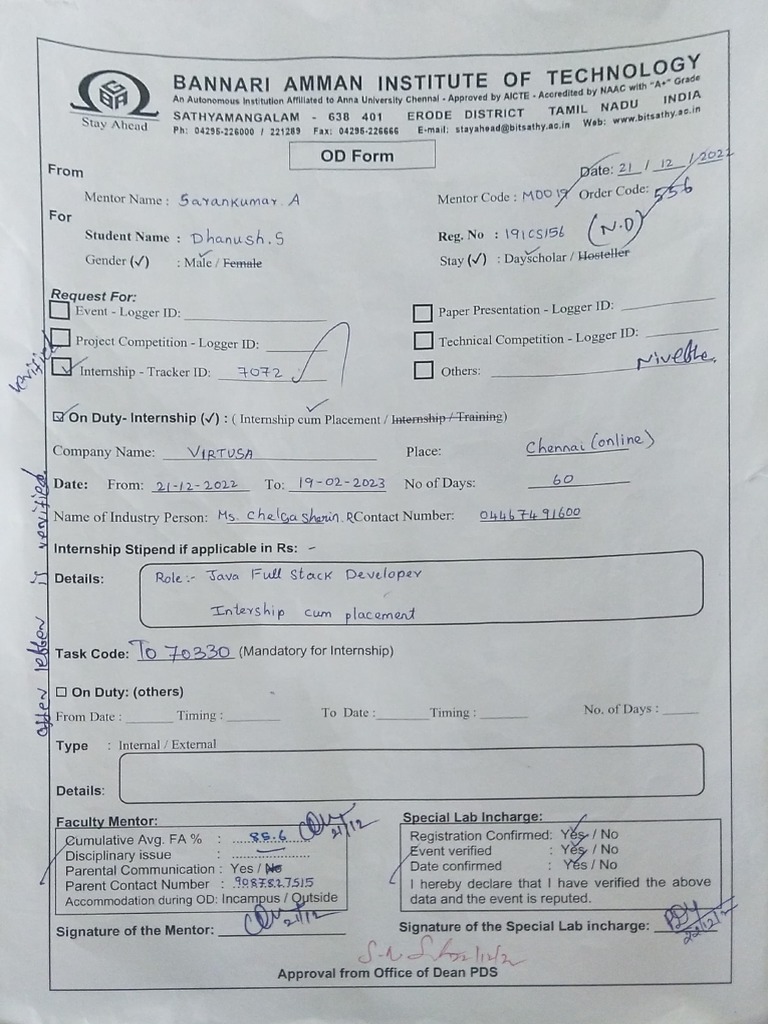 BANNARI AMMAN INSTITUTE OF TECHNOLOGY
An Autonomous Institution Affiliated to Anna University Chennai - Approved by AICTE - Accredited by NAAC with "A+" Grade
SATHYAMANGALAM - 638 401 ERODE DISTRICT TAMIL NADU INDIA
Ph: 04295-226000 / 221289 Fax: 04295-226666 E-mail: stayahead@bitsathy.ac.in Web: www.bitsathy.ac.in
Stay Ahead
OD Form
Date: 21 / 12 / 2022
From
Mentor Name : Sarankumar. A Mentor Code : M0019 Order Code: 556
For
Student Name : Dhanush. S Reg. No : 191CS156 (N.D)
Gender (✓) : Male / Female Stay (✓) : Dayscholar / Hosteller
Request For:
Event - Logger ID: Paper Presentation - Logger ID:
Project Competition - Logger ID: Technical Competition - Logger ID:
Internship - Tracker ID: 7072 Others:
On Duty- Internship (✓) : ( Internship cum Placement / Internship / Training)
Company Name: VIRTUSA Place: Chennai (online)
Date: From: 21-12-2022 To: 19-02-2023 No of Days: 60
Name of Industry Person: Ms. Chelga Sherin. R Contact Number: 04467491600
Internship Stipend if applicable in Rs: -
Details: Role:- Java Full Stack Developer
Intership cum placement
Task Code: To 70330 (Mandatory for Internship)
offer letter is verified
On Duty: (others)
From Date : Timing : To Date : Timing : No. of Days :
Type : Internal / External
Details:
Faculty Mentor: Special Lab Incharge:
Cumulative Avg. FA % : 85.6 Registration Confirmed: Yes / No
Disciplinary issue : Event verified : Yes / No
Parental Communication : Yes / No Date confirmed : Yes / No
Parent Contact Number : 9087827515 I hereby declare that I have verified the above
Accommodation during OD: Incampus / Outside data and the event is reputed.
21/12
Signature of the Mentor: 21/12 Signature of the Special Lab incharge: 22/12/2
22/12/2
Approval from Office of Dean PDS